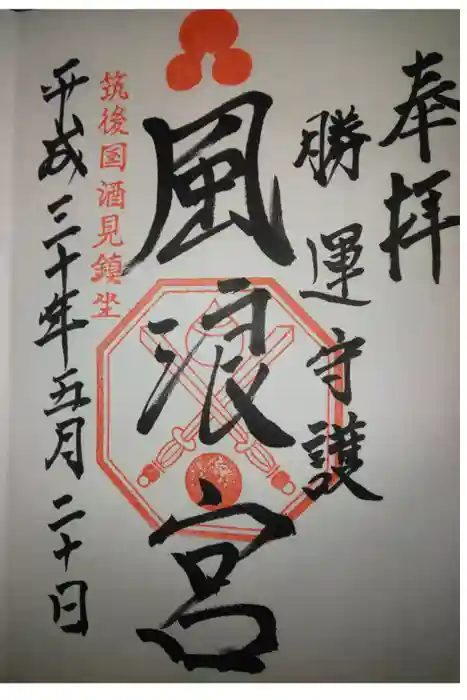 奉拝
勝運守護
風浪宮
筑後国酒見鎮坐
平成三十年五月二十日